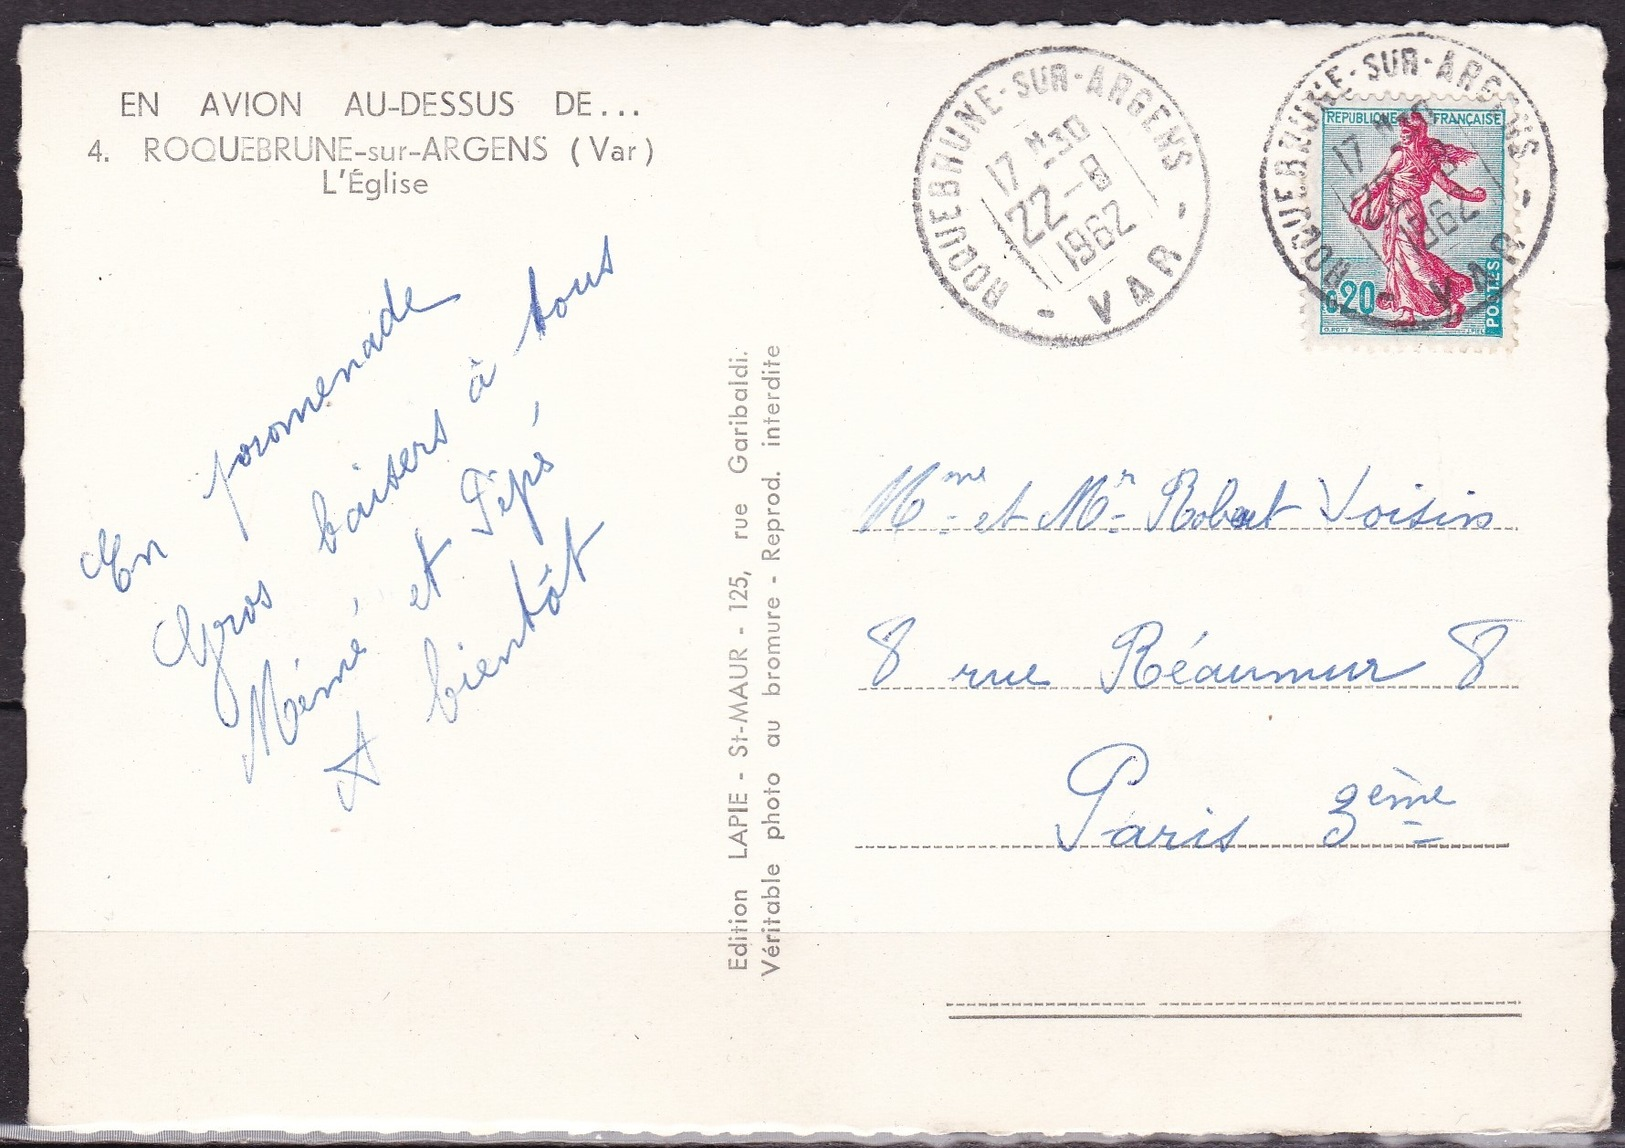 EN AVION AU-DESSUS DE...
4. ROQUEBRUNE-sur-ARGENS (Var)
L'Église
En promenade
Gros baisers à tous
Mémé et Pépé
A bientôt
Edition LAPIE - St-MAUR - 125, rue Garibaldi.
Véritable photo au bromure - Reprod. interdite
ROQUEBRUNE-SUR-ARGENS
17 H 30
22 - 8
1962
- VAR -
ROQUEBRUNE-SUR-ARGENS
17 H 30
22 - 8
1962
- VAR -
REPUBLIQUE FRANÇAISE
0,20
POSTES
Mme et Mr Robert Voisin
8 rue Réaumur 8
Paris 3ème